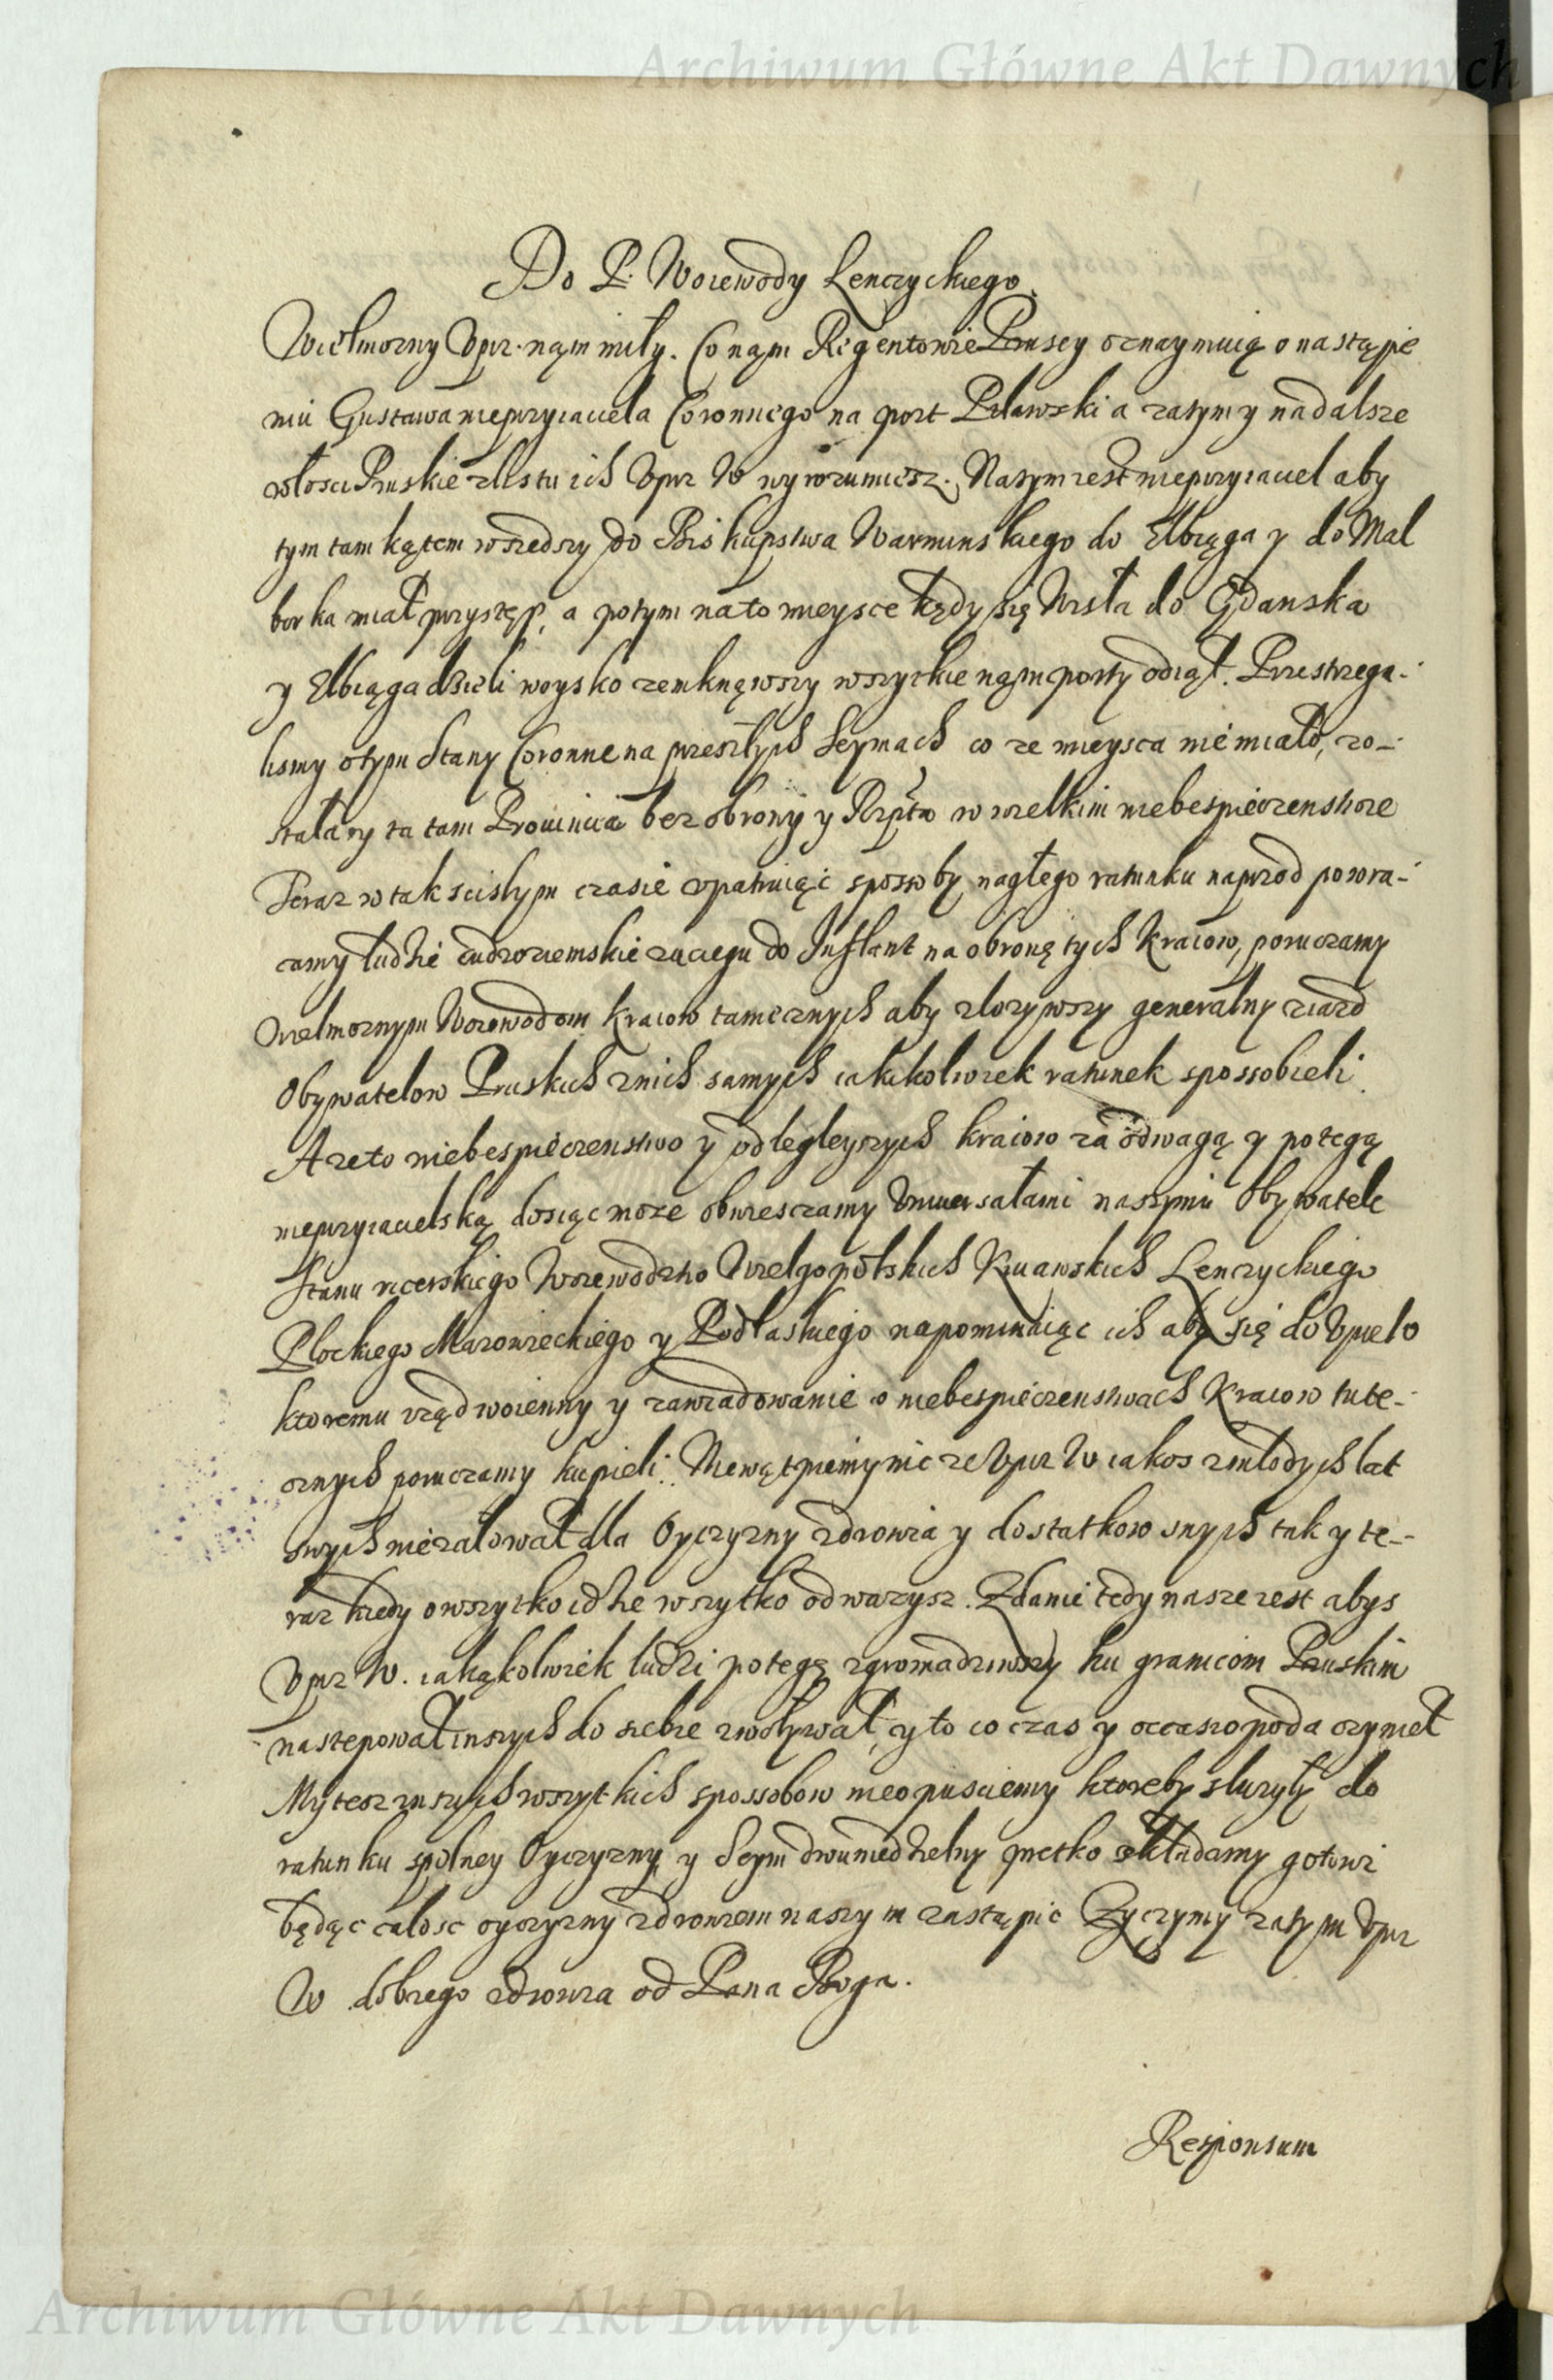 Archiwum Główne Akt Dawnych
Do P. Woiewody Lenczyckiego.
Wielmozny Vprz. nąm miły. Co nąm Regentowie Pruscy oznaymuią o nastąpie
niu Gustawa nieprzyiaciela Coronnego na port Pilawski a zatym y na dalsze
włosci Pruskie z listu ich Vprz W wyrozumiesz. Na tym iest nieprzyiaciel aby
tym tam kątem wszedszy do Biskupstwa Warminskiego do Elbiąga y do Mal
borka miał przystęp, a potym na to mieysce kędy się Wisła do Gdanska
y Elbiąga dzieli woysko zemknąwszy wszytkie nąm porty odiął. Przestrzega-
lismy o tym Stany Coronne na przeszłych Seymach co ze mieysca nie miało, zo-
stała y ta tam Prouincia bez obrony y Rzpta w wielkim niebespieczenstwie
Teraz w tak scisłym czasie vpatruiąc sposoby nagłego ratunku naprzod powra-
camy ludzie cudzoziemskie zaciegu do Inflant na obronę tych kraiow, poruczamy
wielmoznym Woiewodom kraiow tamecznych aby zlozywszy generalny ziazd
Obywatelow Pruskich z nich samych iakikolwiek ratunek spossobieli
A ze to niebespieczenstwo y odlegleyszych kraiow za odwagą y potęgą
nieprzyiacielską dosiąc moze obwiesczamy Vniuersałami naszymi Obywatele
stanu ricerskiego Woiewodztw Wielgopolskich Kuiawskich Lenczyckiego
Plockiego Mazowieckiego y Podlaskiego napominaiąc ich aby się do Vprzeio
ktoremu vrząd woienny y zawiadowanie o niebespieczenstwach Kraiow tute-
cznych poruczamy kupieli. Niewątpiemy nic ze Vprz W iakos z mlodych lat
swych nie załował dla Oyczyzny zdrowia y dostatkow swych tak y te-
raz kiedy o wszytko idzie wszytko odwazysz. Zdanie tedy nasze iest abys
Vprz W. iakąkolwiek ludzi potegę zgromadziwszy ku granicom Pruskim
nastepował inszych do siebie zwoływał, y to co czas y occasio poda czynieł
My tesz inszych wszytkich spossobow nieopusciemy ktoreby sluzyły do
ratunku spolney Oyczyzny y Seym dwuniedzielny prętko składamy gotowi
będąc calosc oyczyzny zdrowiem naszym zastąpic Zyczymy zatym Vprz
W dobrego zdrowia od Pana Boga.
Responsum
Archiwum Główne Akt Dawnych